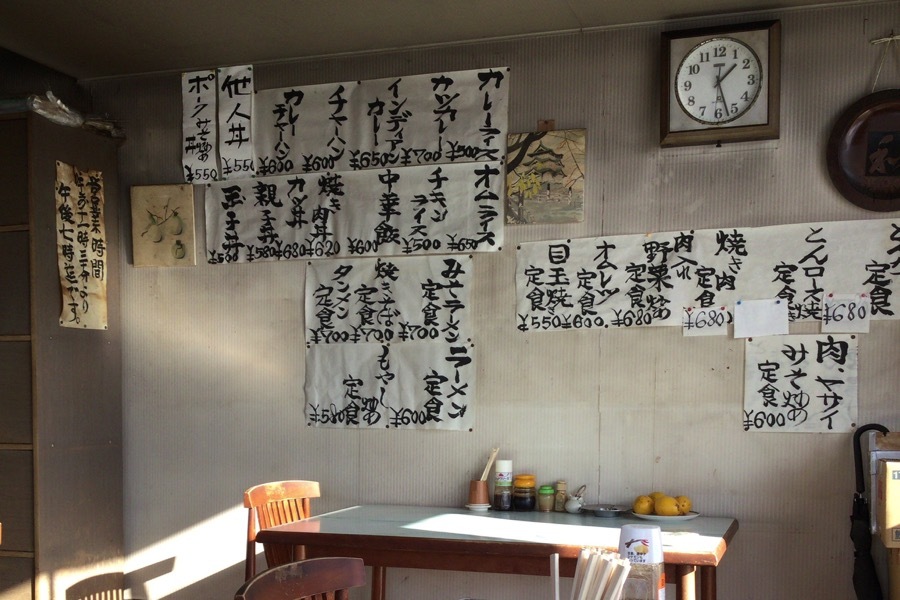 営業時間
午前十一時三十分より
午後七時迄です。
カレーライス ¥500
カツカレー ¥700
インディアンカレー ¥650
チャーハン ¥600
カレーチャーハン ¥600
他人丼 ¥550
ポークみそ炒め丼 ¥550
オムライス ¥650
チキンライス ¥500
中華飯 ¥600
焼き肉丼 ¥620
カツ丼 ¥680
親子丼 ¥580
玉子丼
みそラーメン定食 ¥700
焼きそば定食 ¥700
タンメン定食 ¥700
ラーメン定食 ¥600
もやし炒め定食 ¥580
定食
とんロース焼き定食 ¥680
焼き肉定食 ¥680
肉入れ野菜炒め定食 ¥680
オムレツ定食 ¥600
目玉焼き定食 ¥550
肉、ヤサイみそ炒め定食 ¥600
12 1 2 3 4 5 6 7 8 9 10 11